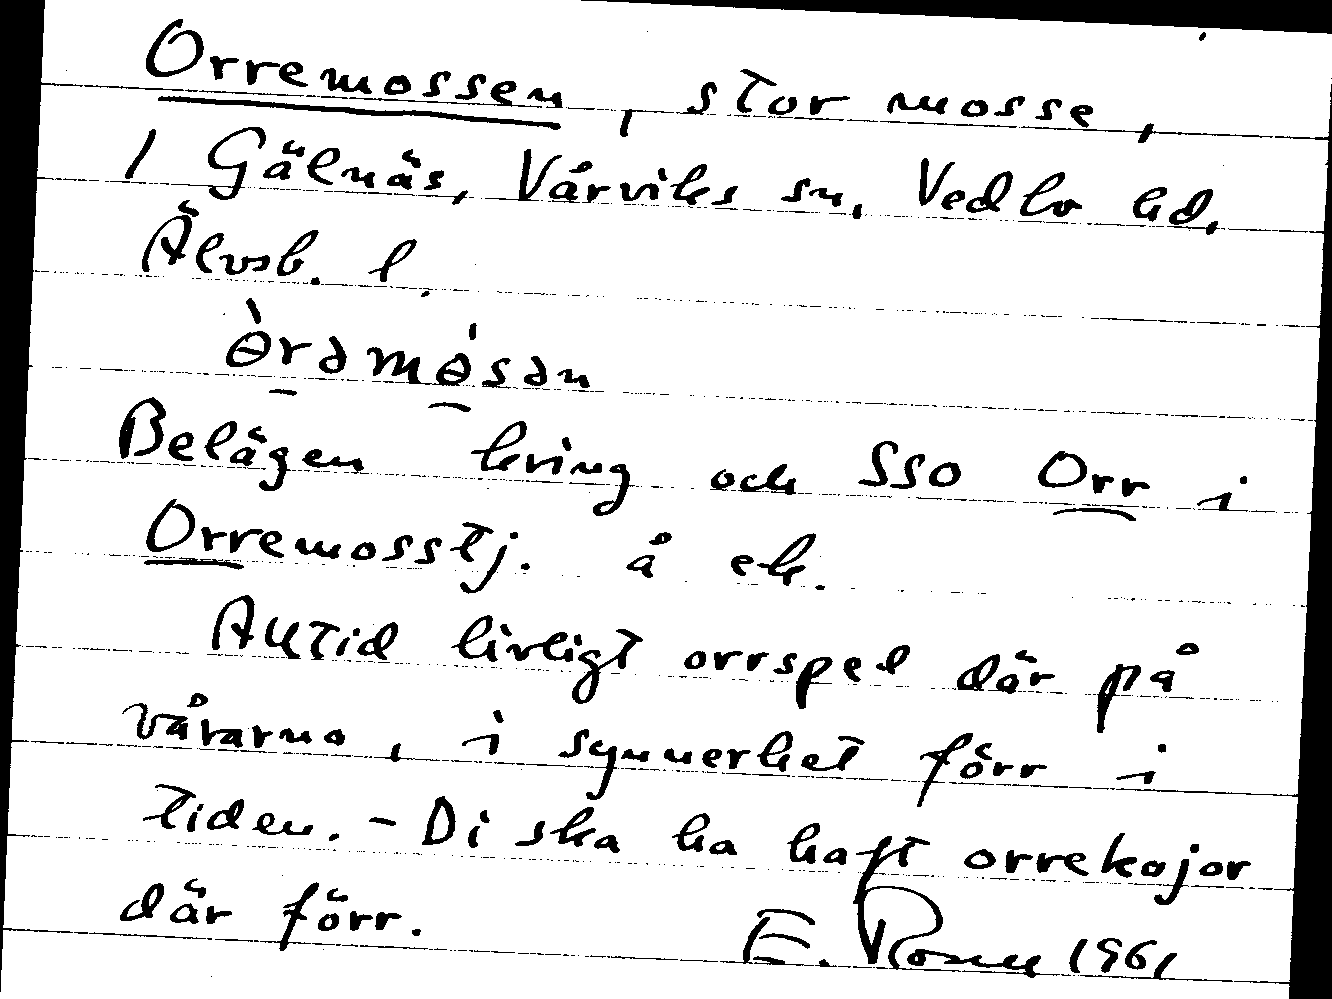 Orremossen, stor mosse,
1 Gälnäs, Vårviks sn, Vedbo hd,
Älvsb. l.
ɵ̀rəmɵ́sən
Belägen kring och SSO Orr i
Orremosstj. å ek.
Alltid livligt orrspel där på
vårarna, i synnerhet förr i
tiden. - Di ska ha haft orrekojor
där förr. E. 1961